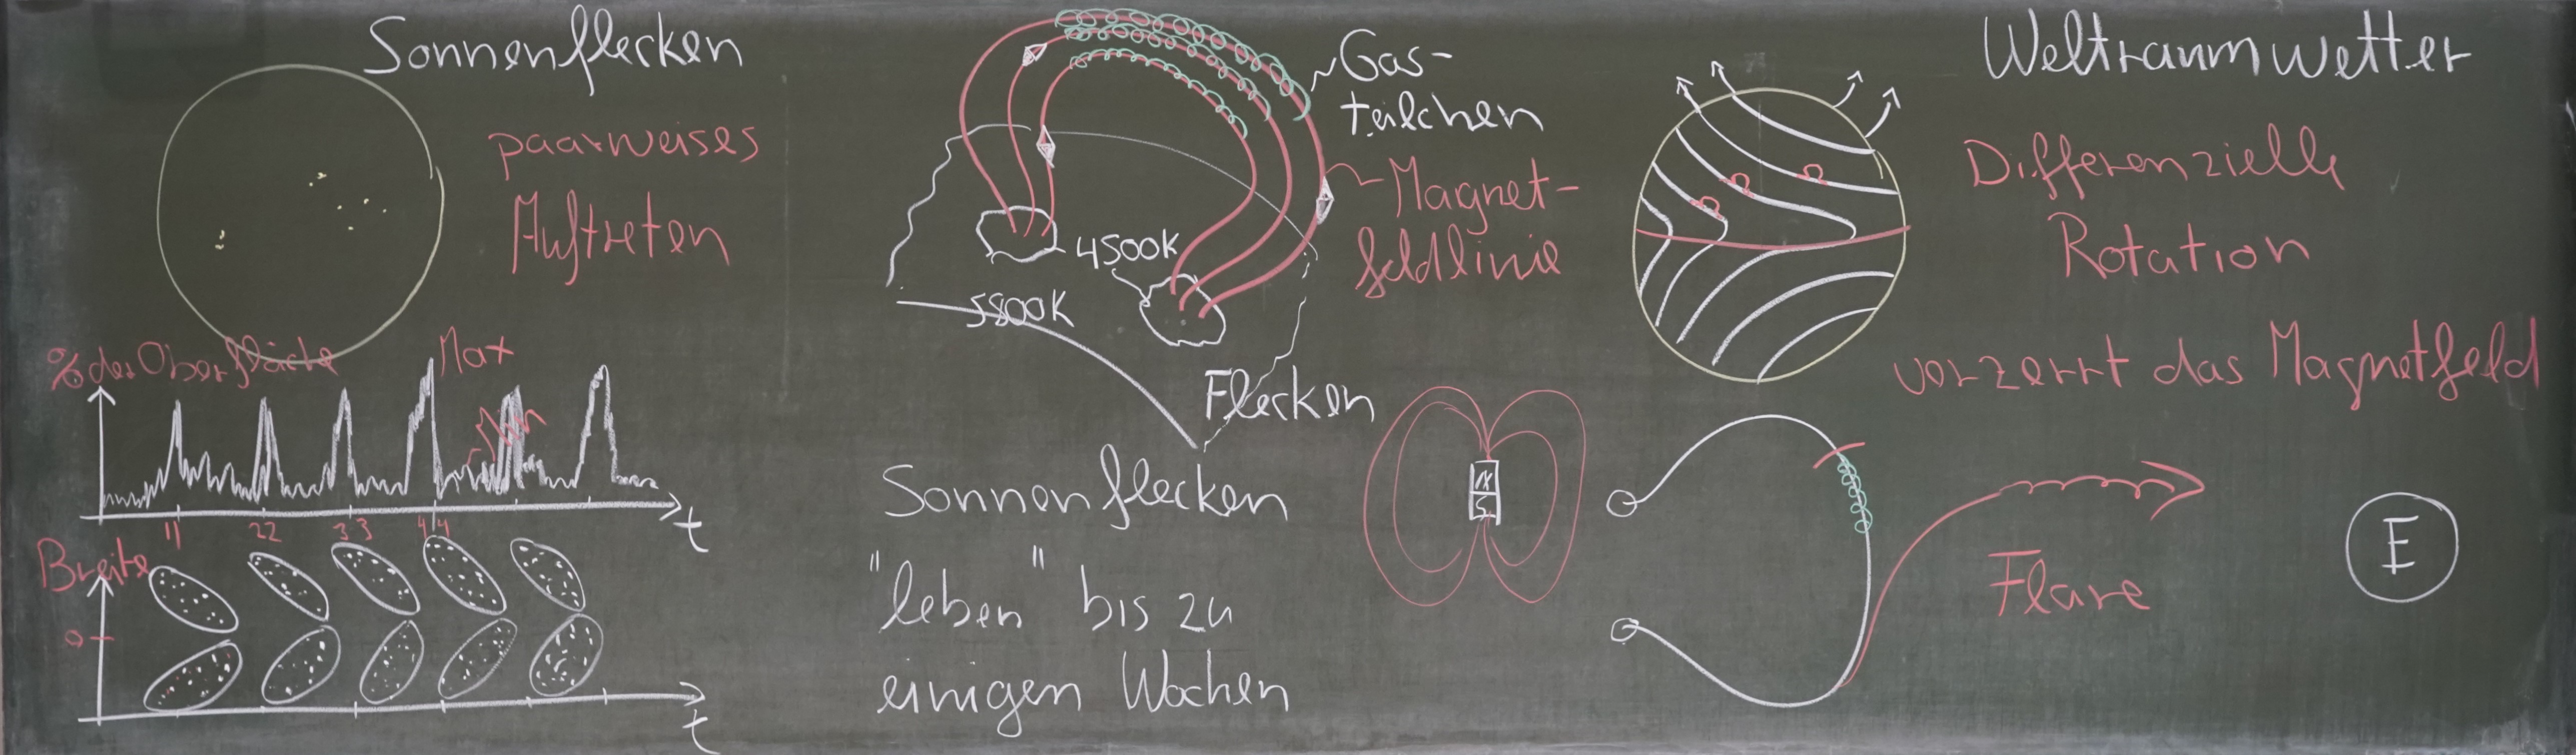 Sonnenflecken
paarweises
Auftreten
% der Oberfläche
Max
11 22 33 44
t
Breite
0
t
Gas-
teilchen
Magnet-
feldlinie
4500K
5800K
Flecken
Sonnenflecken
"leben" bis zu
einigen Wochen
N
S
Weltraumwetter
Differenzielle
Rotation
verzerrt das Magnetfeld
Flare
E